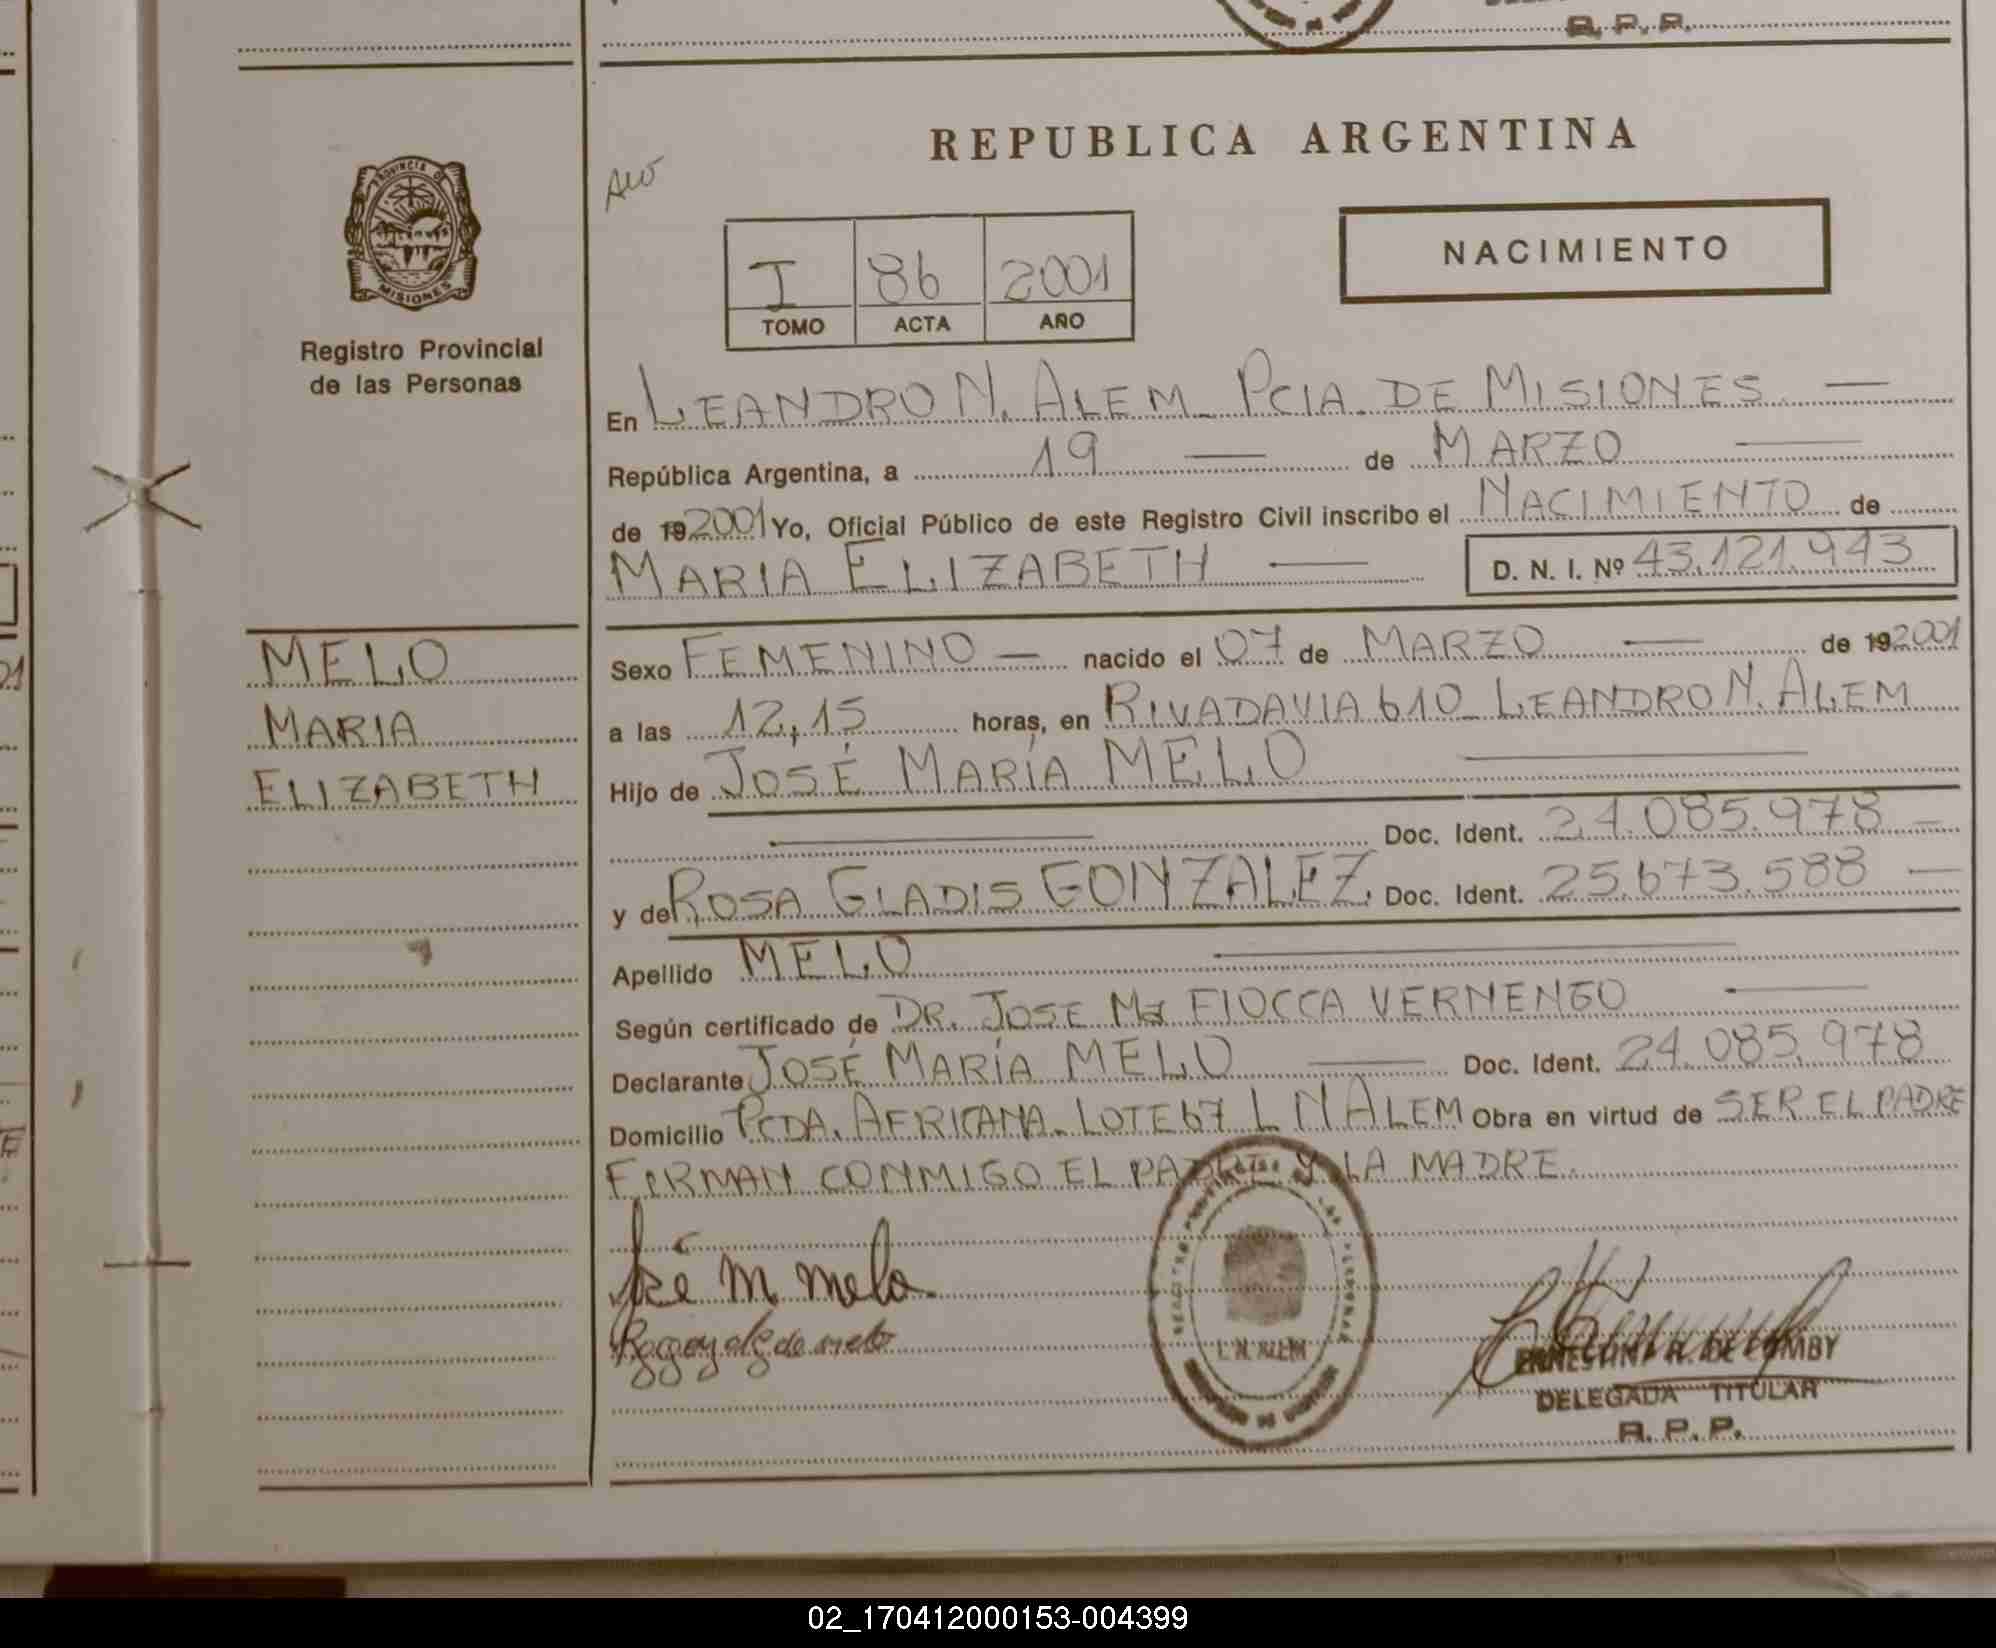 R. P. P.
REPUBLICA ARGENTINA
PROVINCIA DE
MISIONES
Registro Provincial
de las Personas
I 86 2001
TOMO ACTA AÑO
NACIMIENTO
En LEANDRO N. ALEM - PCIA. DE MISIONES. —
República Argentina, a 19 — de MARZO —
de 19 2001 Yo, Oficial Público de este Registro Civil inscribo el NACIMIENTO de
MARIA ELIZABETH — D. N. I. Nº 43.121.943
MELO
MARIA
ELIZABETH
Sexo FEMENINO — nacido el 07 de MARZO — de 19 2001
a las 12,15 horas, en RIVADAVIA 610 - LEANDRO N. ALEM
Hijo de JOSÉ MARÍA MELO —
— Doc. Ident. 24.085.978 —
y de ROSA GLADIS GONZALEZ. Doc. Ident. 25.673.588 —
Apellido MELO —
Según certificado de DR. JOSE Ma FIOCCA VERNENGO —
Declarante JOSÉ MARÍA MELO — Doc. Ident. 24.085.978
Domicilio PCDA. AFRICANA - LOTE 67 L N ALEM Obra en virtud de SER EL PADRE
FIRMAN CONMIGO EL PADRE Y LA MADRE.
José M Melo
de melo
L. N. ALEM
ERNESTINA R. DE COMBY
DELEGADA TITULAR
R. P. P.
02_170412000153-004399